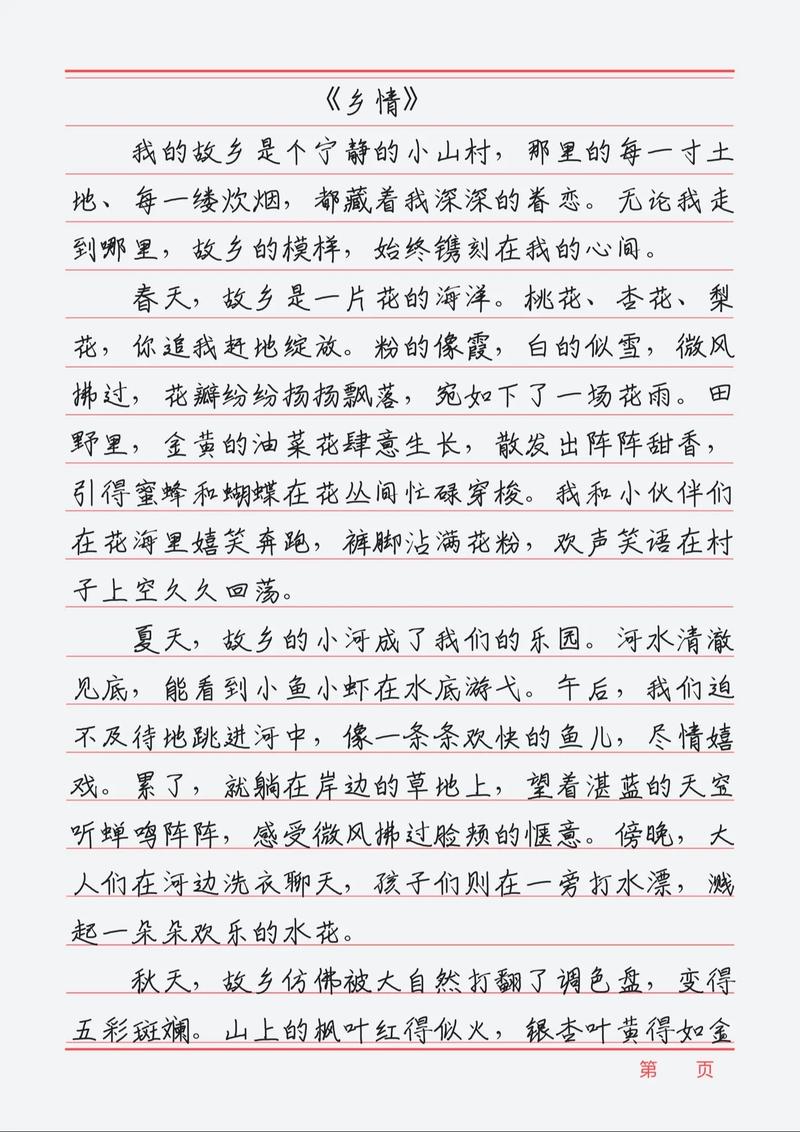 《乡情》
我的故乡是个宁静的小山村，那里的每一寸土
地、每一缕炊烟，都藏着我深深的眷恋。无论我走
到哪里，故乡的模样，始终镌刻在我的心间。
春天，故乡是一片花的海洋。桃花、杏花、梨
花，你追我赶地绽放。粉的像霞，白的似雪，微风
拂过，花瓣纷纷扬扬飘落，宛如下了一场花雨。田
野里，金黄的油菜花肆意生长，散发出阵阵甜香，
引得蜜蜂和蝴蝶在花丛间忙碌穿梭。我和小伙伴们
在花海里嬉笑奔跑，裤脚沾满花粉，欢声笑语在村
子上空久久回荡。
夏天，故乡的小河成了我们的乐园。河水清澈
见底，能看到小鱼小虾在水底游弋。午后，我们迫
不及待地跳进河中，像一条条欢快的鱼儿，尽情嬉
戏。累了，就躺在岸边的草地上，望着湛蓝的天空
听蝉鸣阵阵，感受微风拂过脸颊的惬意。傍晚，大
人们在河边洗衣聊天，孩子们则在一旁打水漂，溅
起一朵朵欢乐的水花。
秋天，故乡仿佛被大自然打翻了调色盘，变得
五彩斑斓。山上的枫叶红得似火，银杏叶黄得如金
第 页